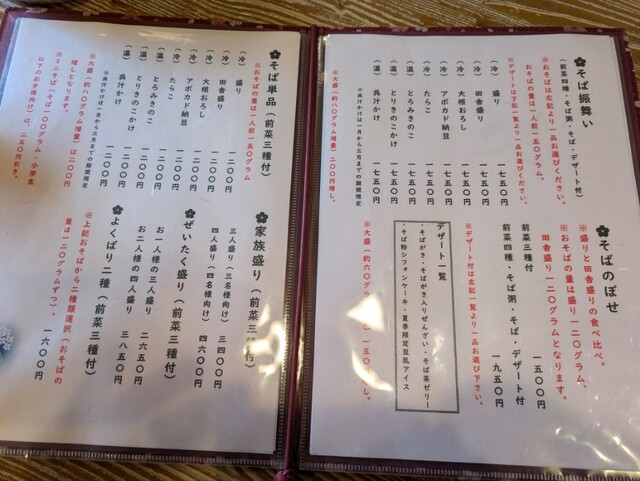 ✽そば振舞い
（前菜四種・そば粥・そば・デザート付）
※おそばは左記より一品お選びください。
おそばの量は一人前一五〇グラム。
※デザートは下記一覧より一品お選びください。
（冷）　盛り　一七五〇円
（冷）　田舎盛り　一七五〇円
（冷）　大根おろし　一七五〇円
（冷）　アボカド納豆　一七五〇円
（冷）　たらこ　一七五〇円
（温）　とろみきのこ　一七五〇円
（温）　とりきのこかけ　一七五〇円
（温）　呉汁かけ　一七五〇円
※呉汁かけは一月から三月までの期間限定
※大盛（約八〇グラム増量）二〇〇円増し。
✽そばのぼせ
※盛りと田舎盛りの食べ比べ。
※おそばの量は盛り一二〇グラム。
田舎盛り一二〇グラムとなります。
前菜三種付　一五〇〇円
前菜四種・そば粥・そば・デザート付　一九五〇円
※デザート付は左記一覧より一品お選び下さい。
デザート一覧
・そばがき・そばがき入りぜんざい・そば茶ゼリー
・そば粉シフォンケーキ・夏季限定豆乳アイス
※大盛（約六〇グラム
✽そば単品（前菜三種付）
※おそばの量は一人前一五〇グラム
（冷）　盛り　一二〇〇円
（冷）　田舎盛り　一二〇〇円
（冷）　大根おろし　一二〇〇円
（冷）　アボカド納豆　一二〇〇円
（冷）　たらこ　一二〇〇円
（温）　とろみきのこ　一二〇〇円
（温）　とりきのこかけ　一二〇〇円
（温）　呉汁かけ　一二〇〇円
※呉汁かけは一月から三月までの期間限定
※大盛（約八〇グラム増量）は二〇〇円
増しとなります。
※ミニそば（そば一〇〇グラム・小学生
以下のお子様向け）は、二五〇円引き。
✽家族盛り（前菜三種付）
三人盛り（三名様向け）　三四〇〇円
四人盛り（四名様向け）　四六〇〇円
✽ぜいたく盛り（前菜三種付）
お一人様の三人盛り　二六五〇円
お二人様の四人盛り　三八五〇円
✽よくばり二種（前菜三種付）
一六〇〇円
※上記おそばから二種類選択（おそばの
量は一二〇グラムずつ）。